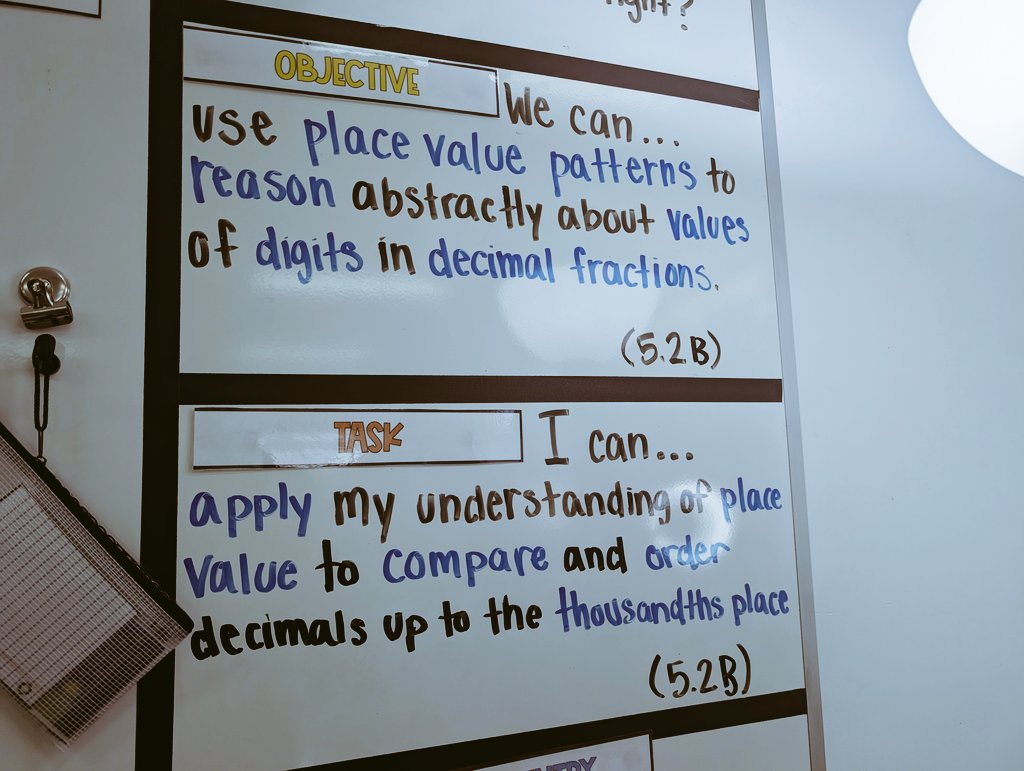 right?
OBJECTIVE We can...
use place value patterns to
reason abstractly about values
of digits in decimal fractions.
(5.2B)
TASK I can...
apply my understanding of place
value to compare and order
decimals up to the thousandths place
(5.2B)